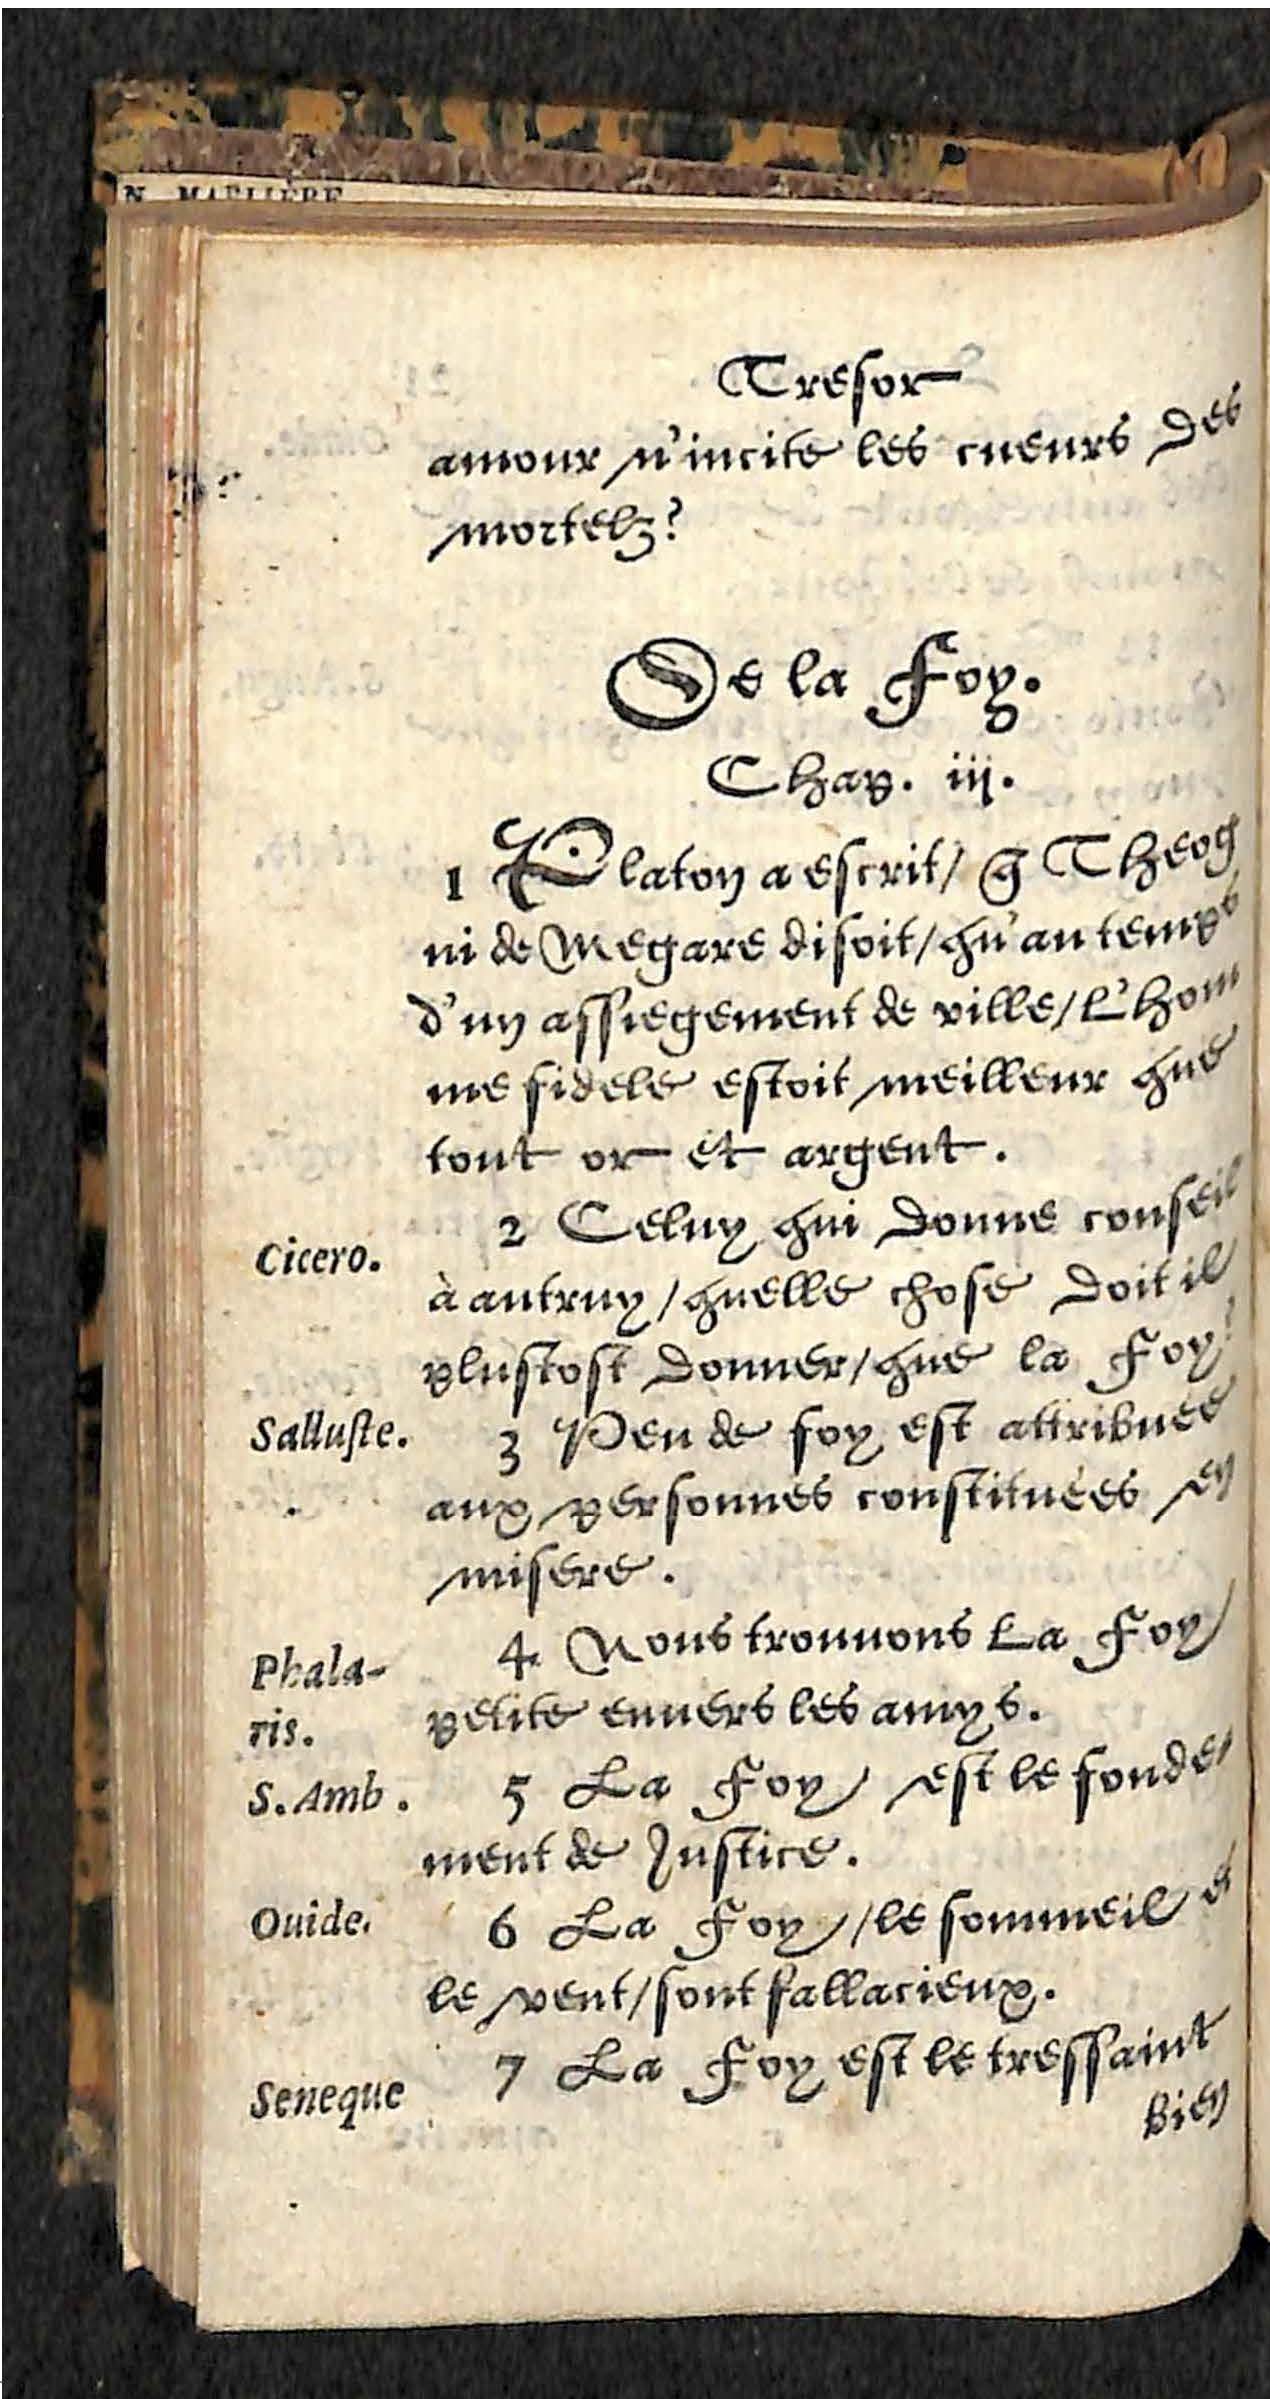 Tresor
amour n'incite les cueurs des
mortelz?
De la Foy.
Chap. iii.
1 Platon a escrit/ q̃ Theog
ni de Megare disoit/qu'au temps
d'un assiegement de ville/l'hom
me fidele estoit meilleur que
tout or et argent.
Cicero. 2 Celuy qui donne conseil
à autruy/quelle chose doit il
plustost donner/que la Foy?
Salluste. 3 Peu de foy est attribuée
aux personnes constituées en
misere.
Phala- 4 Nous trouuons la Foy
ris. petite enuers les amys.
S. Amb. 5 La Foy est le fonde-
ment de Justice.
Ouide. 6 La Foy/le sommeil et
le vent/sont fallacieux.
Seneque 7 La Foy est le tressaint
bien